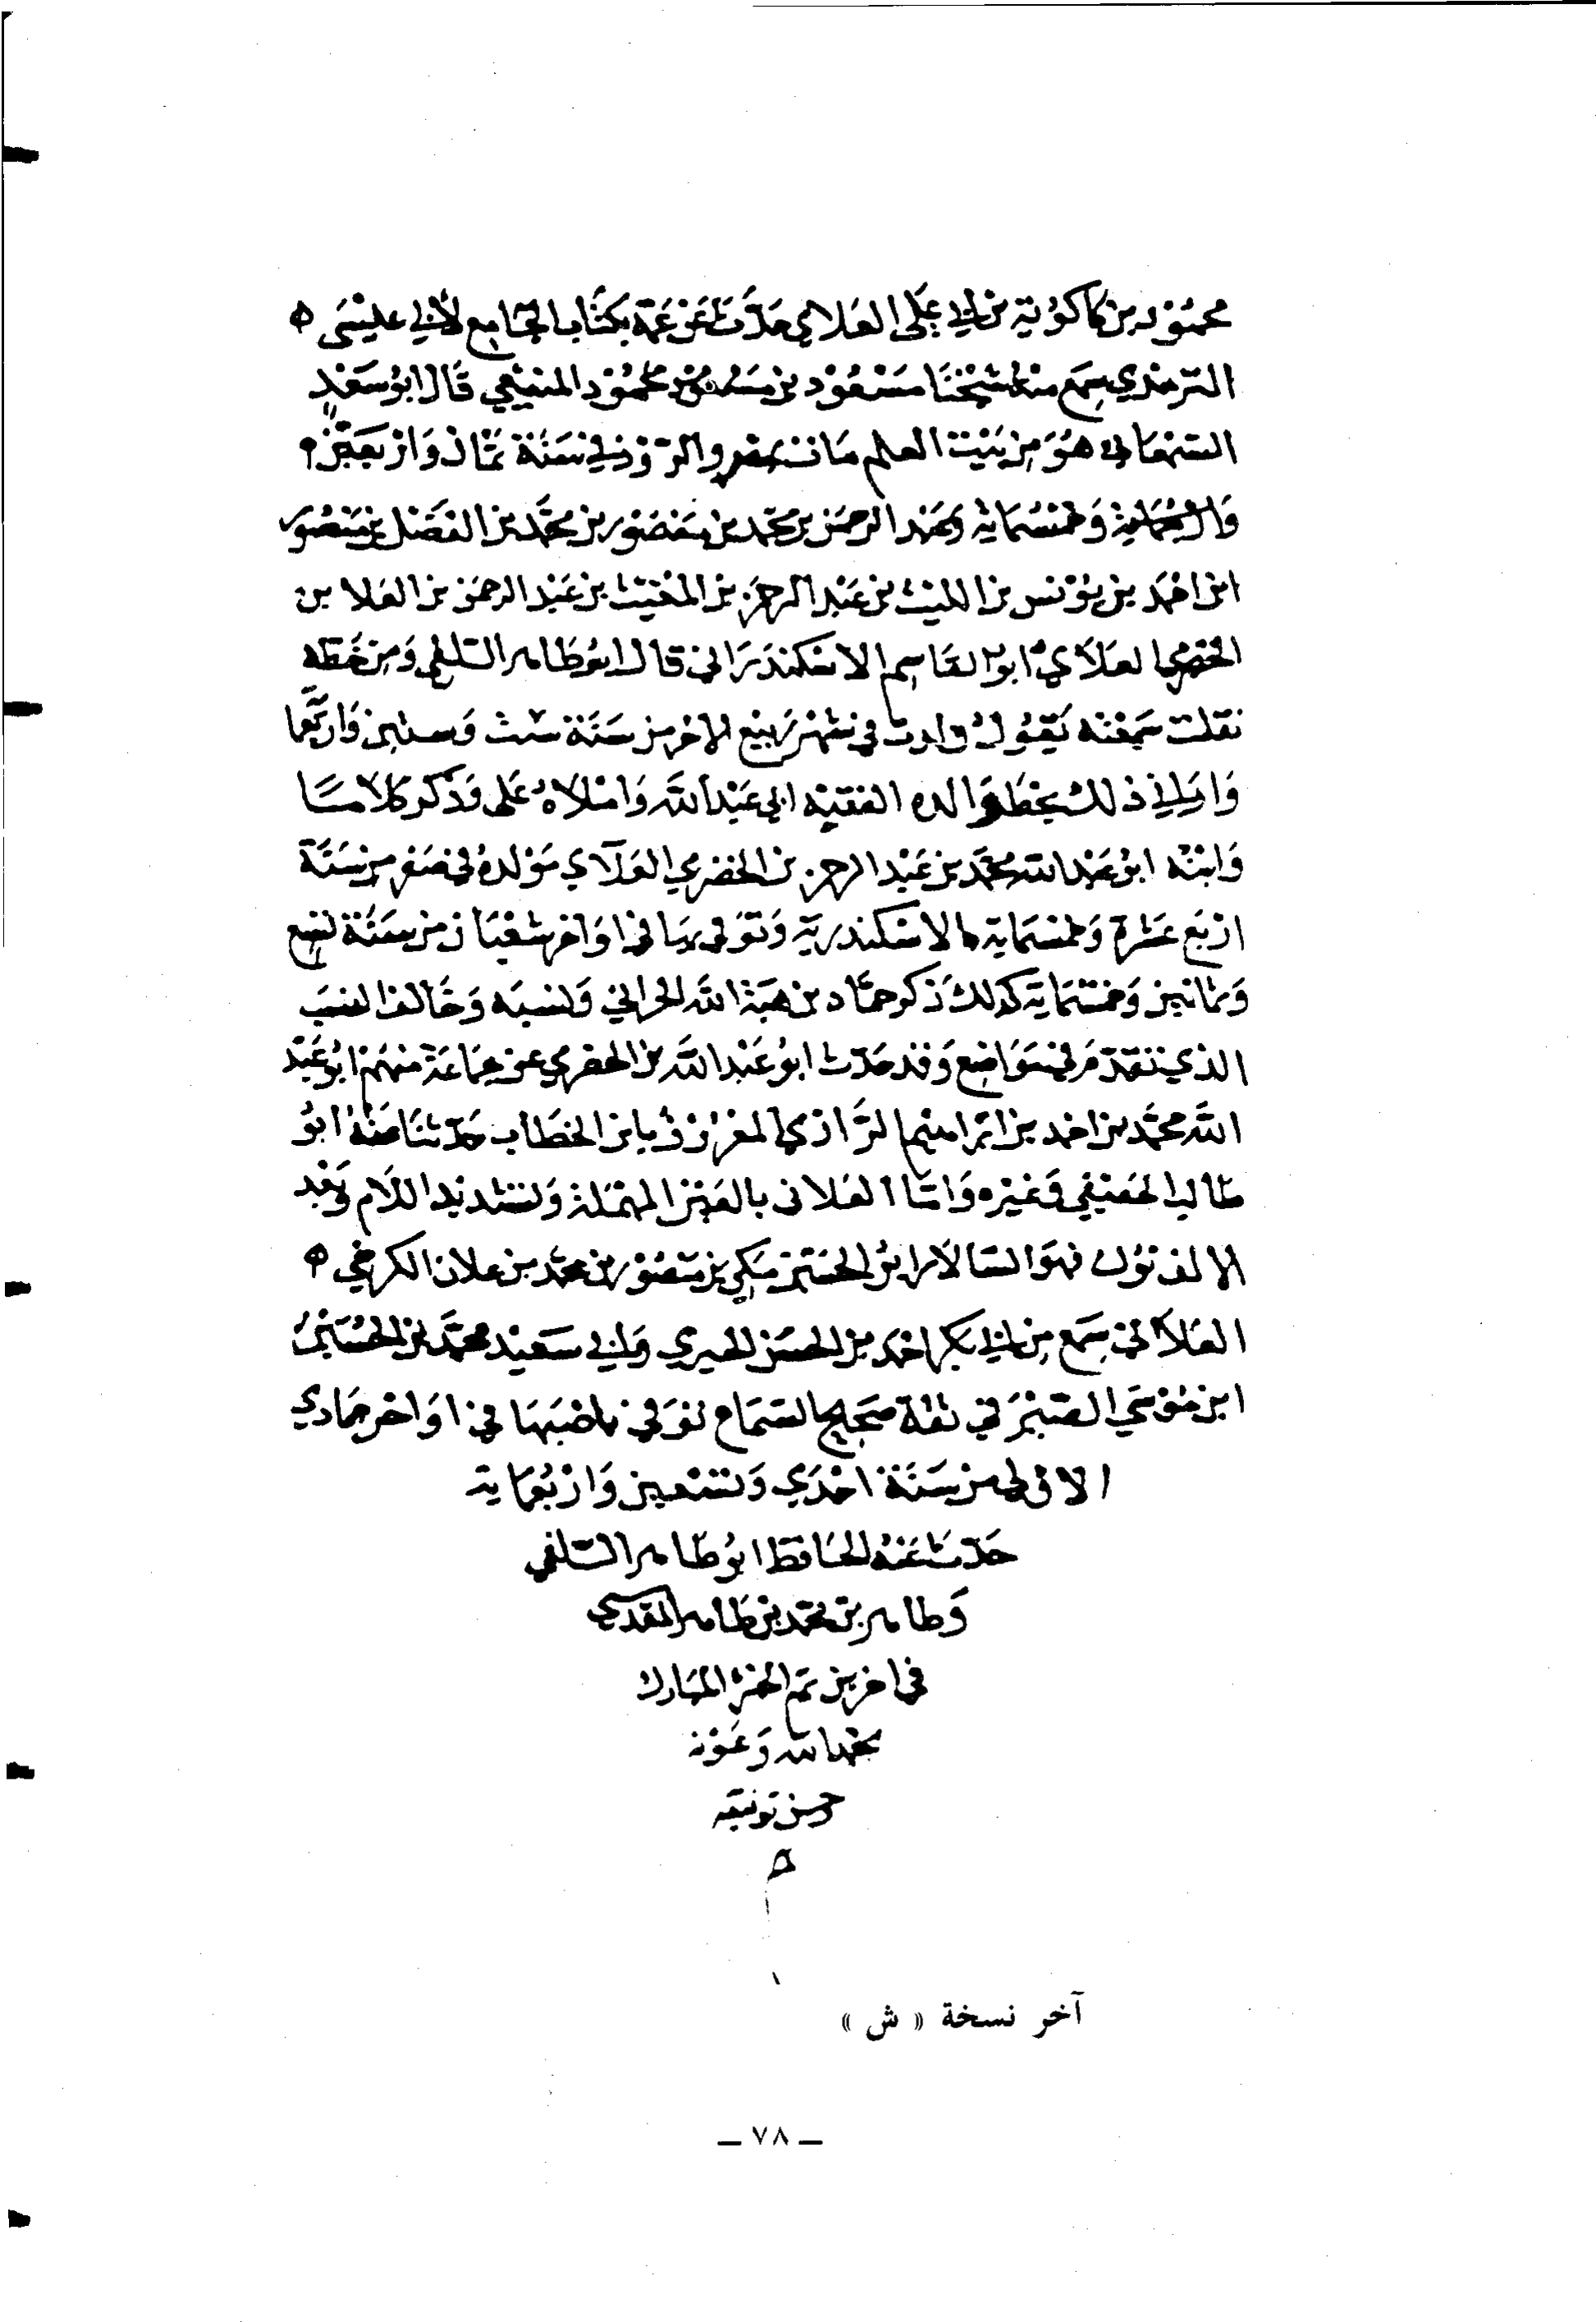 محمود بن كاكويه بن ابي علي العلاي حدث عن عمه بكتاب الجامع لابي عيسى
الترمذي سمع منه شيخنا مسعود بن محمود المنيعي قال ابو سعد
السمعاني هو من بيت العلم مات بمرو الروذ في سنة ثمان واربعين
وخمسماية وعبد الرحمن بن محمد بن منصور بن محمد بن الفضل بن منصور
ابن احمد بن يونس بن الليث بن عبد الرحمن بن المغيث بن عبد الرحمن بن العلا بن
الحضرمي العلاي ابو القاسم الاسكندراني قال ابو طاهر السلفي ومن خطه
نقلت سمعته يقول ولدت في شهر ربيع الاخر من سنة ست وستين واربعما
واراني ذلك بخط والده الفقيه ابي عبد الله واملاه علي وذكر كلاما
وابنه ابو عبد الله محمد بن عبد الرحمن بن الحضرمي العلاي مولده في صفر من سنة
اربع عشرة وخمسماية بالاسكندرية وتوفي بها في اواخر شعبان من سنة تسع
وثمانين وخمسماية كذلك ذكر حماد بن هبة الله الحراني ونسبه وخالف النسب
الذي تقدم في مواضع وقد حدث ابو عبد الله بن الحضرمي عن جماعة منهم ابو عبد
الله محمد بن احمد بن ابراهيم الرازي المعروف بابن الخطاب حدثنا عنه ابو
طالب الحنيفي وغيره واما العلاني بالعين المهملة وتشديد اللام وبعد
الالف نون فهو السالار ابو الحسن مكي بن منصور بن محمد بن علان الكرجي
العلاني سمع من ابي بكر احمد بن الحسن الحيري وابي سعيد محمد بن
ابن موسى الصيرفي ثقة صحيح السماع توفي باصبهان في اواخر جمادي
الاولى من سنة احدي وتسعين واربعماية
حدث عنه الحافظ ابو طاهر السلفي
وطاهر بن محمد بن طاهر المقدسي
في اخرين تم الجزء المبارك
بحمد الله وعونه
وحسن توفيقه
آخر نسخة « ش »
— ٧٨ —